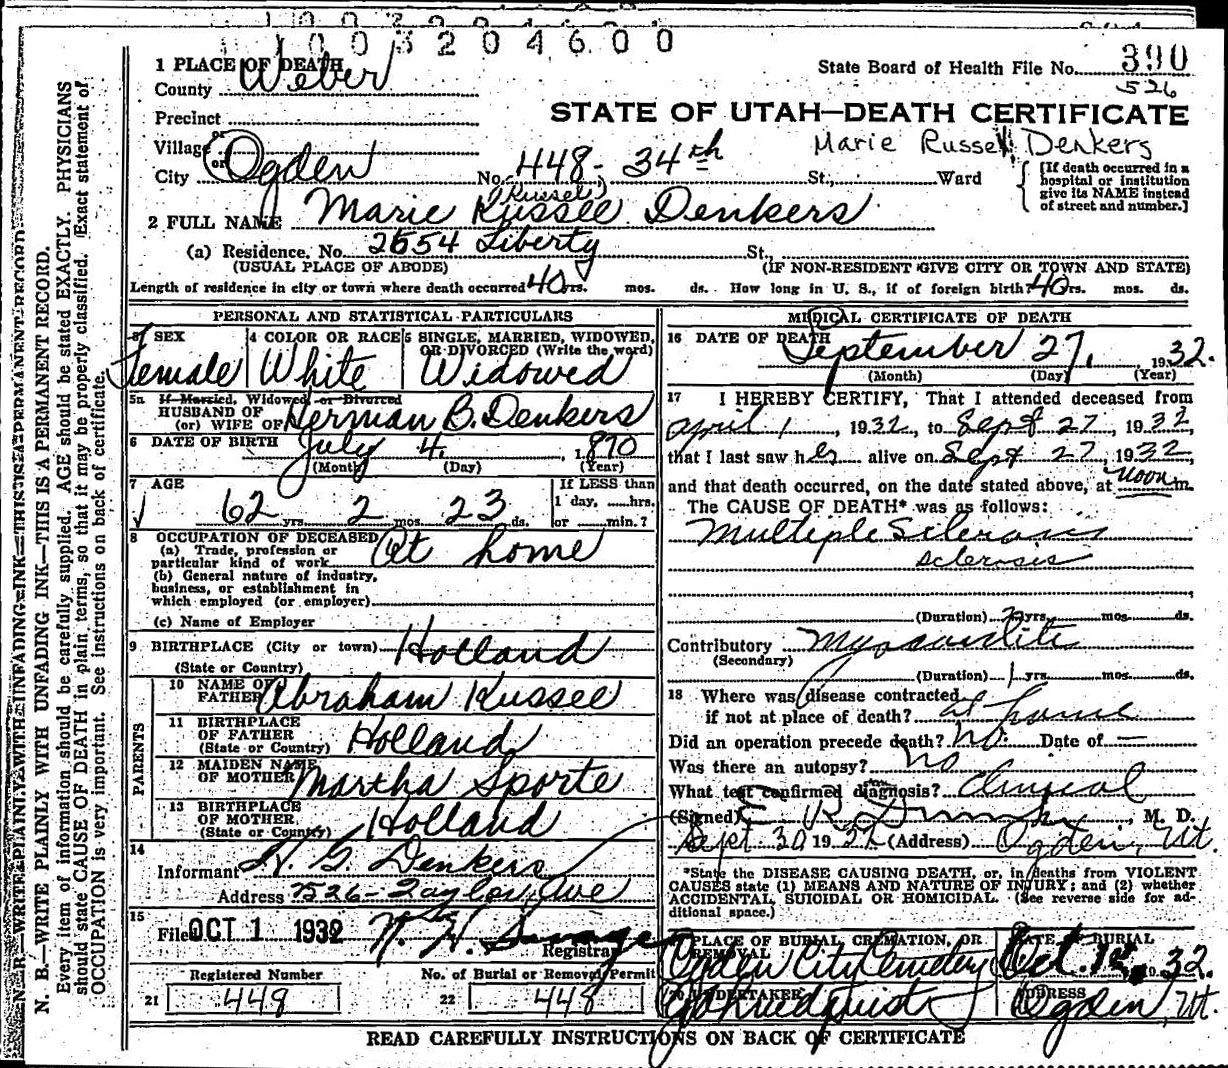 1003204600
1 PLACE OF DEATH
County Weber
State Board of Health File No. 390
526
Precinct
STATE OF UTAH—DEATH CERTIFICATE
Village
or
Marie Russell Denkers
City Ogden No. 448 - 34th St., Ward
[If death occurred in a hospital or institution give its NAME instead of street and number.]
(Russel)
2 FULL NAME Marie Russee Denkers
(a) Residence, No. 2554 Liberty St.
(USUAL PLACE OF ABODE) (IF NON-RESIDENT GIVE CITY OR TOWN AND STATE)
Length of residence in city or town where death occurred 40 yrs. mos. ds. How long in U. S., if of foreign birth? 40 yrs. mos. ds.
PERSONAL AND STATISTICAL PARTICULARS
3 SEX Female
4 COLOR OR RACE White
5 SINGLE, MARRIED, WIDOWED, OR DIVORCED (Write the word) Widowed
5a If Married, Widowed or Divorced
HUSBAND OF
(or) WIFE OF Herman B. Denkers
6 DATE OF BIRTH July 4, 1870
(Month) (Day) (Year)
7 AGE
62 yrs. 2 mos. 23 ds.
If LESS than 1 day, ......hrs. or ......min.?
8 OCCUPATION OF DECEASED
(a) Trade, profession or particular kind of work At home
(b) General nature of industry, business, or establishment in which employed (or employer)
(c) Name of Employer
9 BIRTHPLACE (City or town) Holland
(State or Country)
PARENTS
10 NAME OF FATHER Abraham Russee
11 BIRTHPLACE OF FATHER (State or Country) Holland
12 MAIDEN NAME OF MOTHER Martha Sporte
13 BIRTHPLACE OF MOTHER (State or Country) Holland
14
Informant H. G. Denkers
Address 2526 - Taylor Ave
15
Filed OCT 1 1932
Registrar
Registered Number
21 449
No. of Burial or Removal Permit
22 448
MEDICAL CERTIFICATE OF DEATH
16 DATE OF DEATH September 27, 1932.
(Month) (Day) (Year)
17 I HEREBY CERTIFY, That I attended deceased from
April 1, 1932, to Sept 27, 1932,
that I last saw her alive on Sept 27, 1932,
and that death occurred, on the date stated above, at noon m.
The CAUSE OF DEATH* was as follows:
Multiple Sclerosis
sclerosis
(Duration) 2 yrs. mos. ds.
Contributory Myocarditis
(Secondary)
(Duration) 1 yrs. mos. ds.
18 Where was disease contracted
if not at place of death? at home
Did an operation precede death? No. Date of —
Was there an autopsy? no
What test confirmed diagnosis? Clinical
(Signed) M. D.
Sept. 30 1932 (Address) Ogden, Ut.
*State the DISEASE CAUSING DEATH, or, in deaths from VIOLENT
CAUSES state (1) MEANS AND NATURE OF INJURY; and (2) whether
ACCIDENTAL, SUICIDAL OR HOMICIDAL. (See reverse side for additional space.)
PLACE OF BURIAL, CREMATION, OR REMOVAL Ogden City Cemetery
DATE BURIAL Oct. 1st, 1932.
20 UNDERTAKER
ADDRESS Ogden, Ut.
READ CAREFULLY INSTRUCTIONS ON BACK OF CERTIFICATE
N. B.—WRITE PLAINLY WITH UNFADING INK—THIS IS A PERMANENT RECORD.
Every item of information should be carefully supplied. AGE should be stated EXACTLY. PHYSICIANS
should state CAUSE OF DEATH in plain terms, so that it may be properly classified. Exact statement of
OCCUPATION is very important. See instructions on back of certificate.